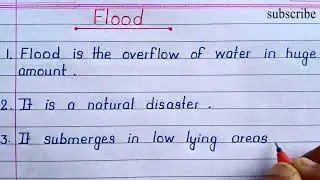 subscribe
Flood
1. Flood is the overflow of water in huge
amount.
2. It is a natural disaster.
3. It submerges in low lying areas